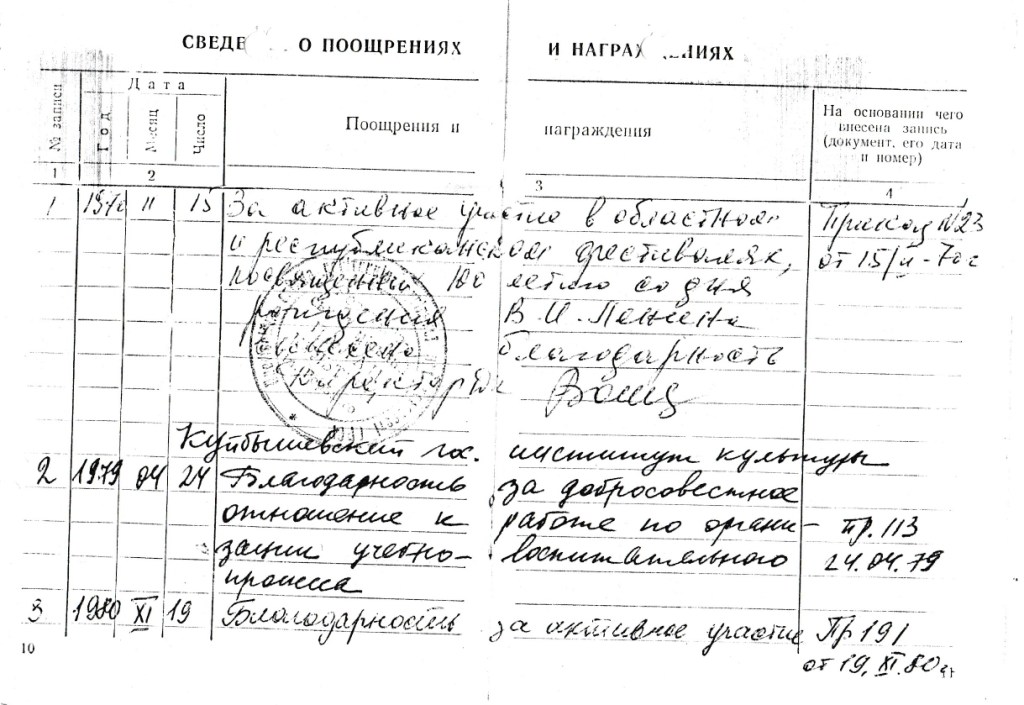 СВЕДЕ О ПООЩРЕНИЯХ И НАГРАЖДЕНИЯХ
№ записи
Дата
Год
Месяц
Число
Поощрения и награждения
На основании чего
внесена запись
(документ, его дата
и номер)
1 2 3 4
1 1970 II 15 За активное участие в областном Приказ N23
и республиканском фестивалях, от 15/II-70г
посвященный 100 летию со дня
рождения В.И.Ленина
объявлена благодарность
Директор
Куйбышевский гос. институт культуры
2 1979 04 24 Благодарность за добросовестное
отношение к работе по органи- пр. 113
зации учебно-воспитательного 24.04.79
процесса
3 1980 XI 19 Благодарность за активное участие Пр 191
от 19.XI.80г
10